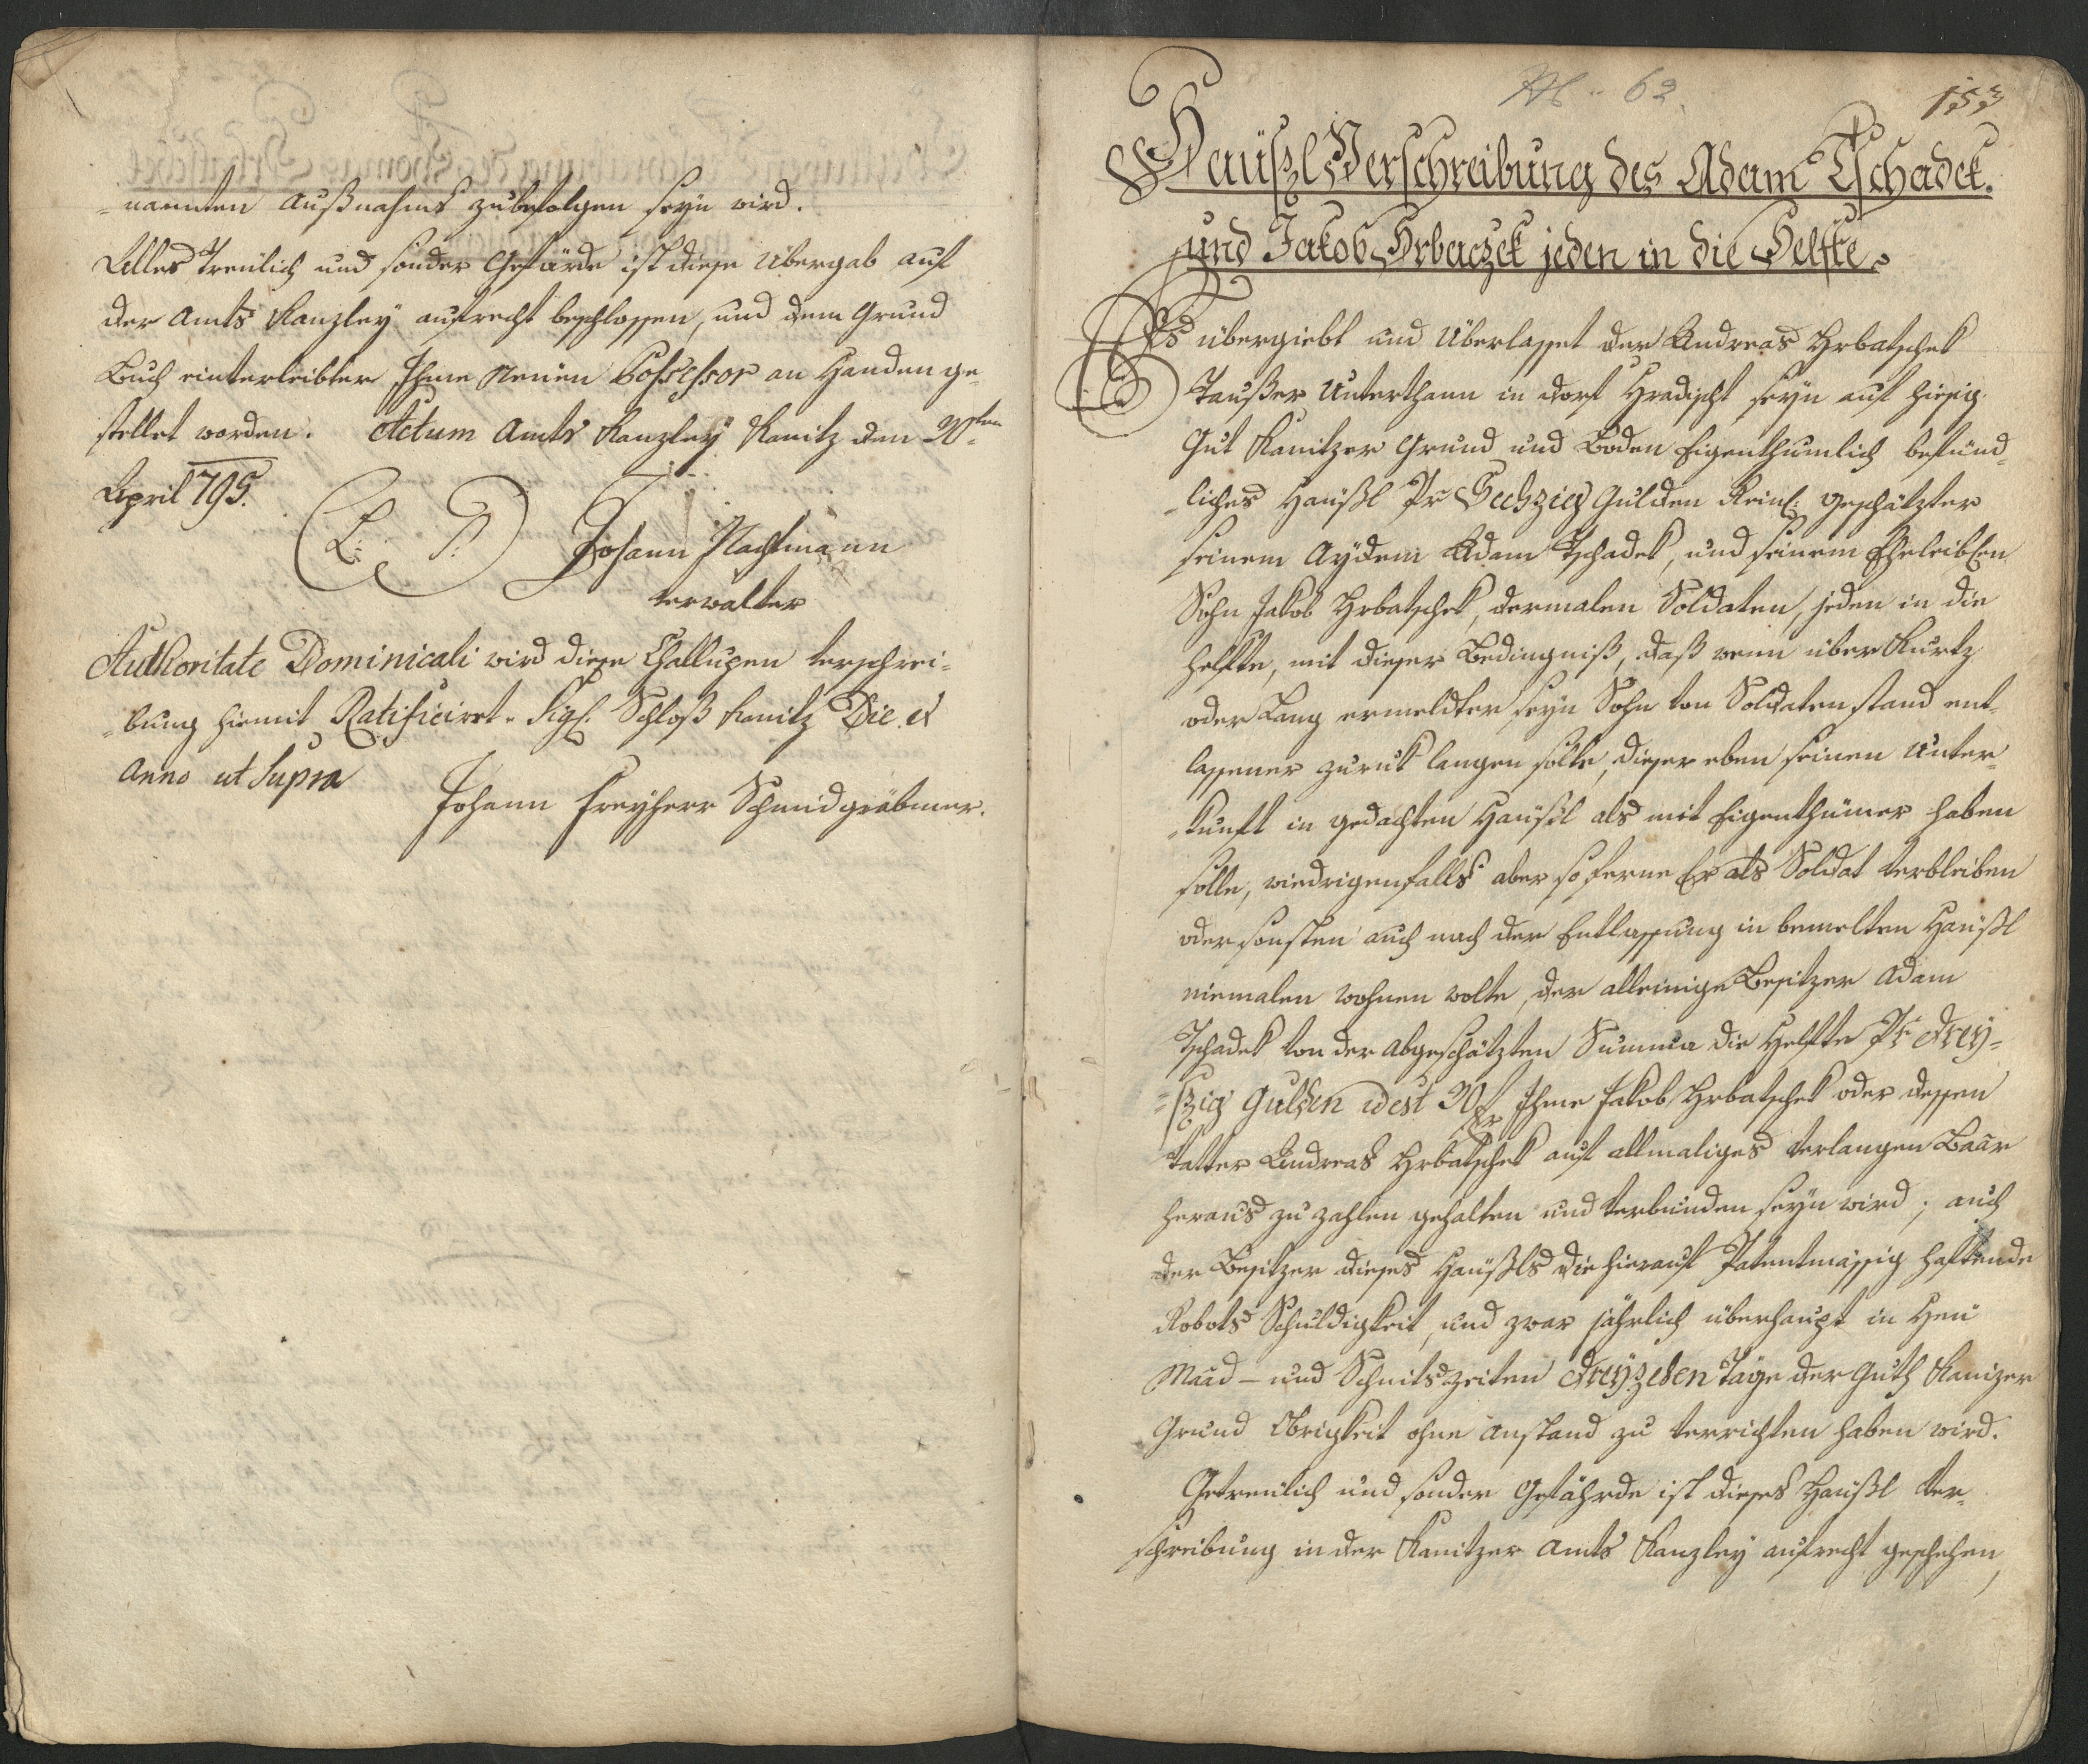 nannten Außnahms zubefolgen seyn wird.
Alles treülich und sonder Gefärde ist diese Übergab auf
der Amts Kanzley aufrecht beschlossen, und dem Grund
Buch einverleibter Ihme Neüen Possessor an Handen ge-
stellet worden. Actum Amts Kanzley Kanitz den 20ten
April 795.
L: S: Johann Nachtmann
Verwalter
Authoritate Dominicali wird diese Challupen Verschrei-
-bung hiemit Ratificirt. Sigl. Schloß Kanitz Die et
Anno ut Supra
Johann Freyherr Schmidgräbner.
N. 62.
153
Haüßl Verschreibung des Adam Tschadek.
und Jakob Hrbaczek jeden in die Helfte.
Es übergiebt und Überlasset der Andreas Hrbatschek
Taußer Unterthann in dorf Hradischt seyn auf hiesig.
Gut Kanitzer Grund und Boden Eigenthumlich befünd-
-liches Haüßl Pr Sechzieg Gulden Reinl: geschätzter
seinem Aydem Adam Tschadek, und seinem Eheleiblen
Sohn Jakob Hrbatschek, dermalen Soldaten, jeden in die
Helfte, mit dieser Bedingniß, daß wenn über Kurtz
oder Lang ermeldter seyn Sohn von Soldatenstand ent-
lassener zuruk langen solle, dieser eben seinen Unter-
-kunft in gedachten Haüßl als mit Eigenthümer haben
solle, wiedrigenfalls aber so ferne Er als Soldat verbleiben
oder sonsten auch nach der Entlassung in bemelten Haüßl
niemalen wohnen wolte, der alleinige Besitzer Adam
Tschadek von der abgeschätzten Summa die Helfte Pr drey-
=szig Gulden idest 30 f Ihme Jakob Hrbatschek oder dessen
Vatter Andreas Hrbatschek auf allmaliges Verlangen Baar
heraus zu zahlen gehalten und verbunden seyn wird; auch
der Besitzer dieses Haüßls die hierauf Patentmässig haftende
Robots Schuldigkeit, und zwar jährlich überhaupt in Heü
Maad - und Schnitszeiten dreyzehen Täge der Guth Kanizer
Grund Obrigkeit ohne Anstand zu verrichten haben wird.
Getreülich und sonder Gefährde ist dieses Haüßl Ver-
schreibung in der Kanitzer Amts Kanzley aufrecht geschehen,